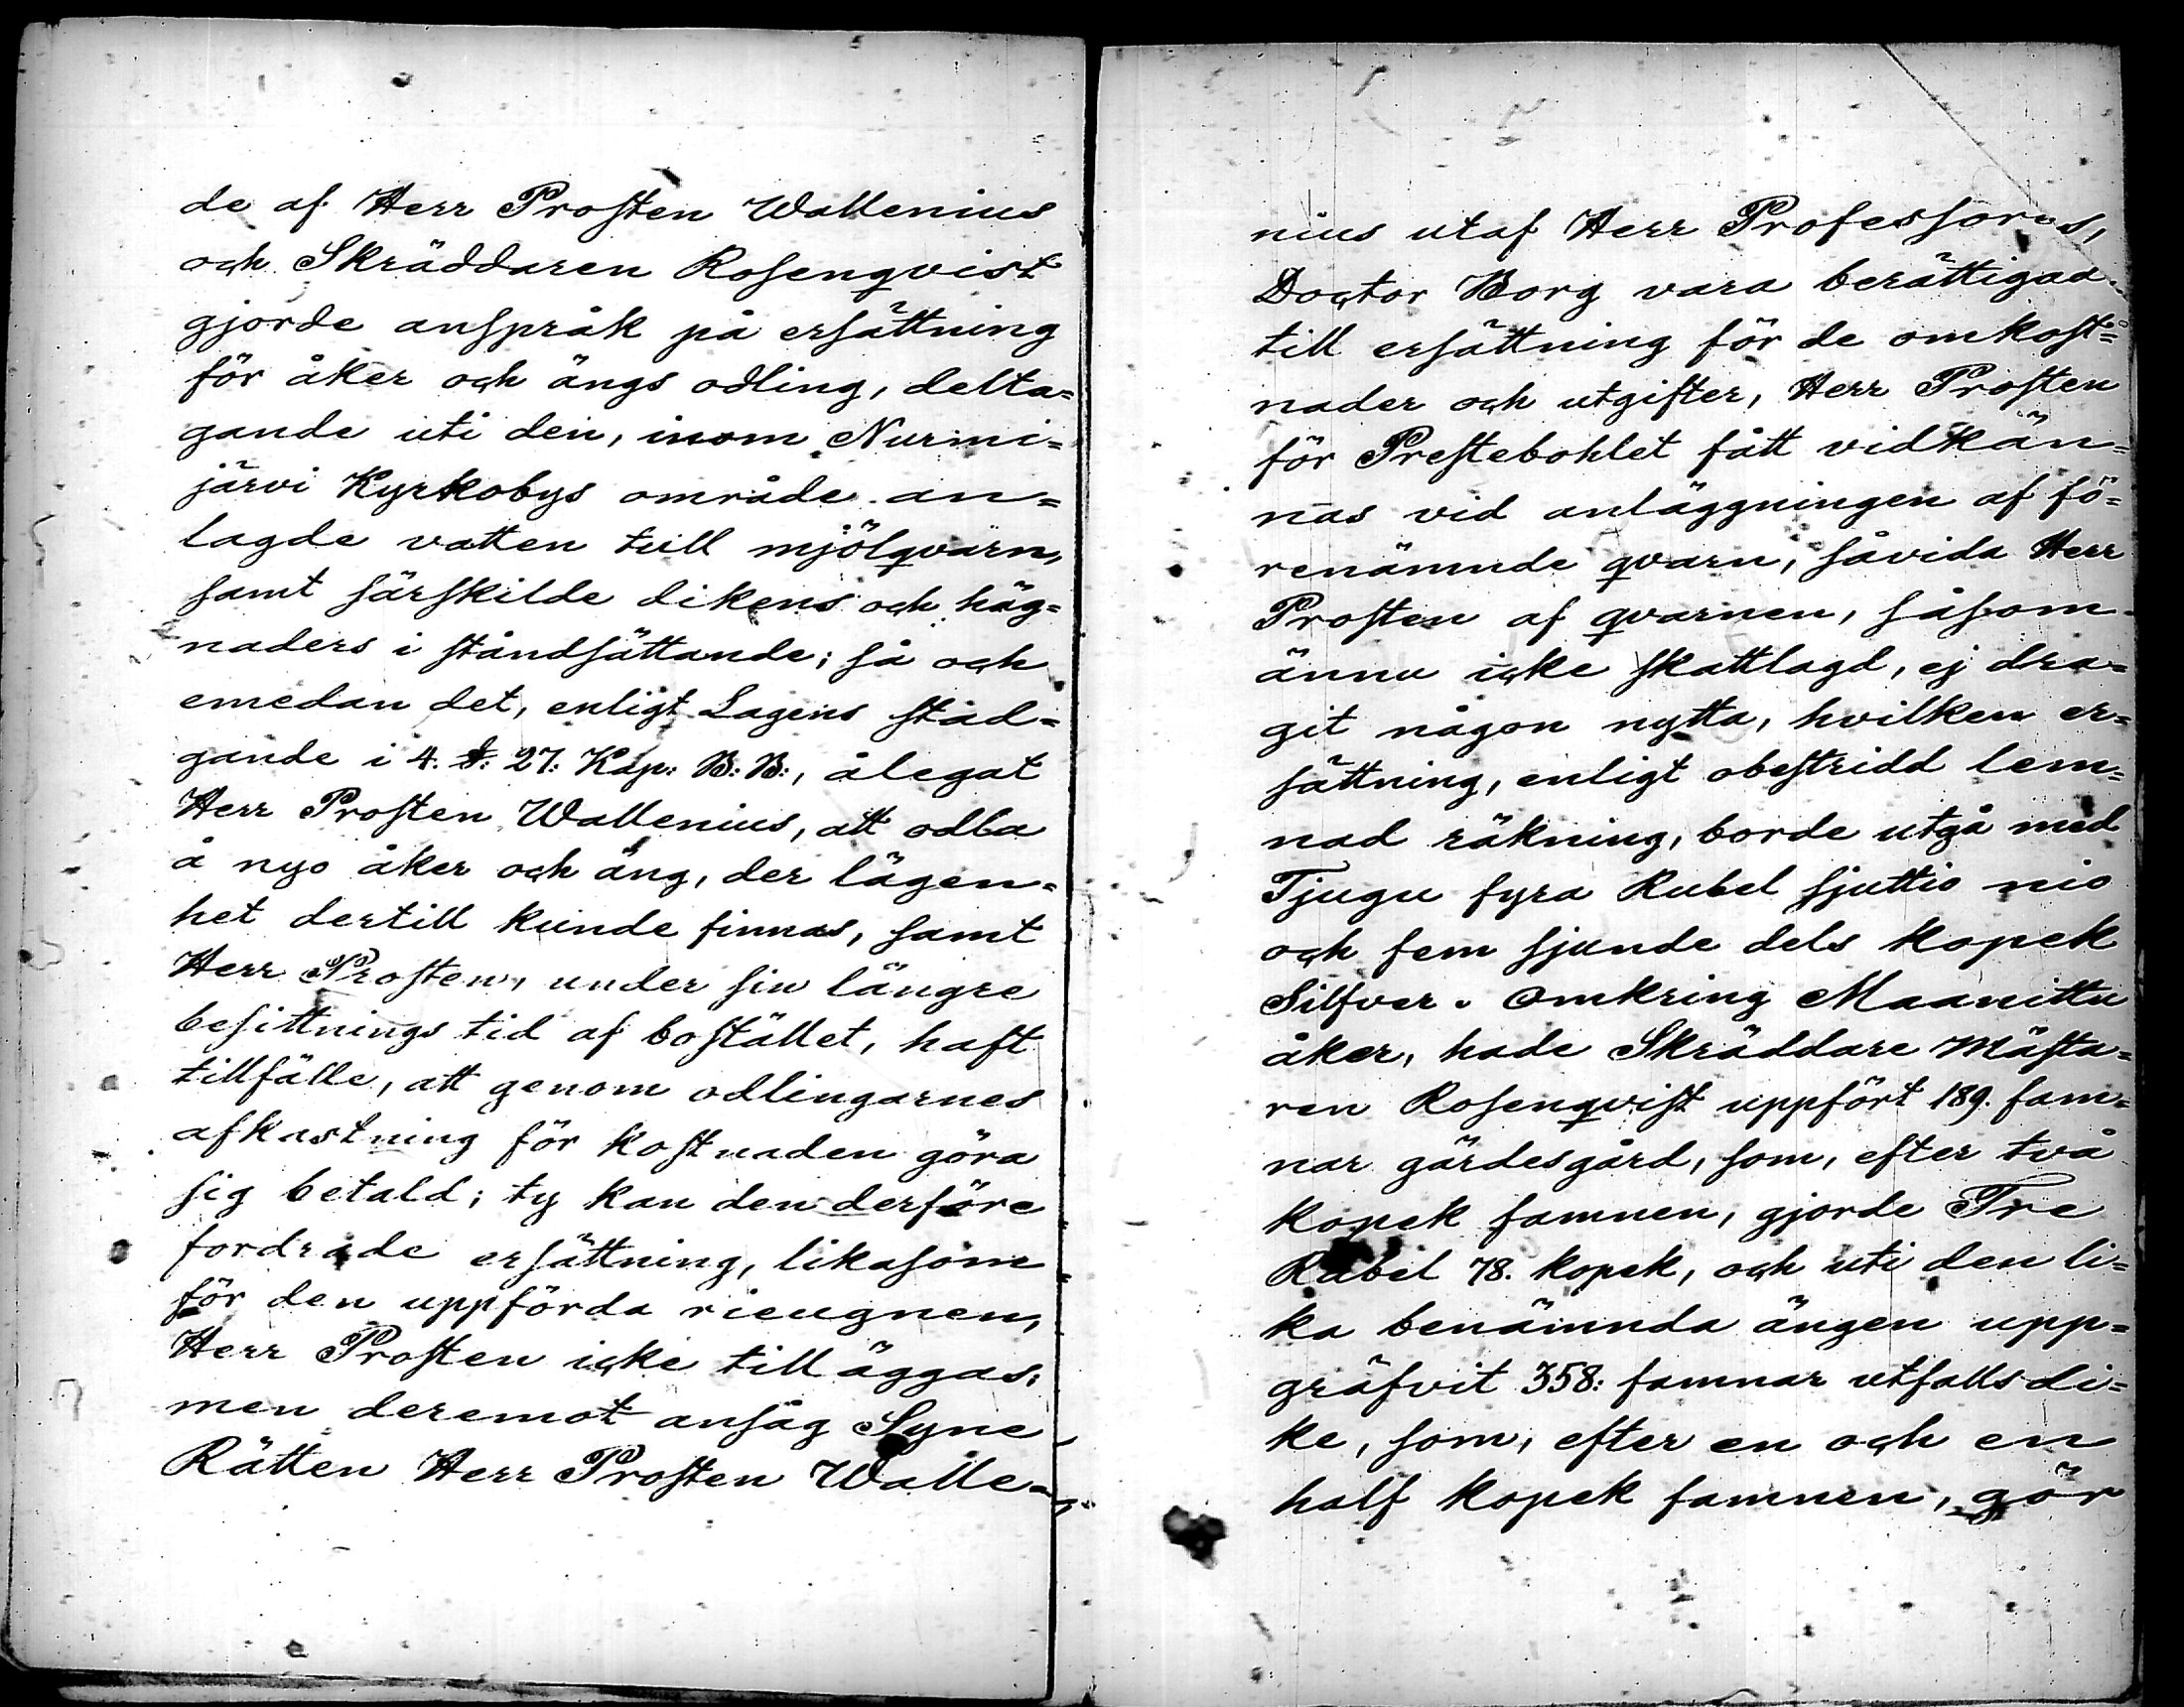 de af Herr Prosten Wallenius
och Skräddaren Rosenqvist
gjorde anspråk på ersättning
för åker och ängs odling, delta=
gande uti den, inom Nurmi=
järvi Kyrkobys område an=
lagde vatten tull mjölqvarn,
samt särskilde dikens och häg=
naders i ståndsättande; så och
emedan det, enligt Lagens stad=
gande i 4. §: 27: Kap: B: B:, ålegat
Herr Prosten Wallenius, att odla
å nyo åker och äng, der lägen=
het dertill kunde finnas, samt
Herr Prosten, under sin längre
besittnings tid af bostället, haft
tillfälle, att genom odlingarnes
afkastning för kostnaden göra
sig betald; ty kan den derföre
fordrade ersättning, likasom
för den uppförda rieugnen,
Herr Prosten icke tilläggas,
men deremot ansåg Syne
Rätten Herr Prosten Walle=
nius utaf Herr Professorns,
Doctor Borg vara berättigad
till ersättning för de omkost=
nader och utgifter, Herr Prosten
för Prestebohlet fått vidkän=
nas vid anläggningen af fö=
renämnde qvarn, såvida Herr
Prosten af qvarnen, såsom
ännu icke skattlagd, ej dra=
git någon nytta, hvilken er=
sättning, enligt obestridd lem=
nad räkning, borde utgå med
Tjugu fyra Rubel sjuttio nio
och fem sjunde dels kopek
Silfver. Omkring Maanittu
åker, hade Skräddare Mästa=
ren Rosenqvist uppfört 189. fam=
nar gärdesgård, som, efter två
kopek famnen, gjorde Tre
Rubel 78. kopek, och uti den li=
ka benämnda ängen upp=
gräfvit 358: famnar utfallsdi=
ke, som, efter en och en
half kopek famnen, gör